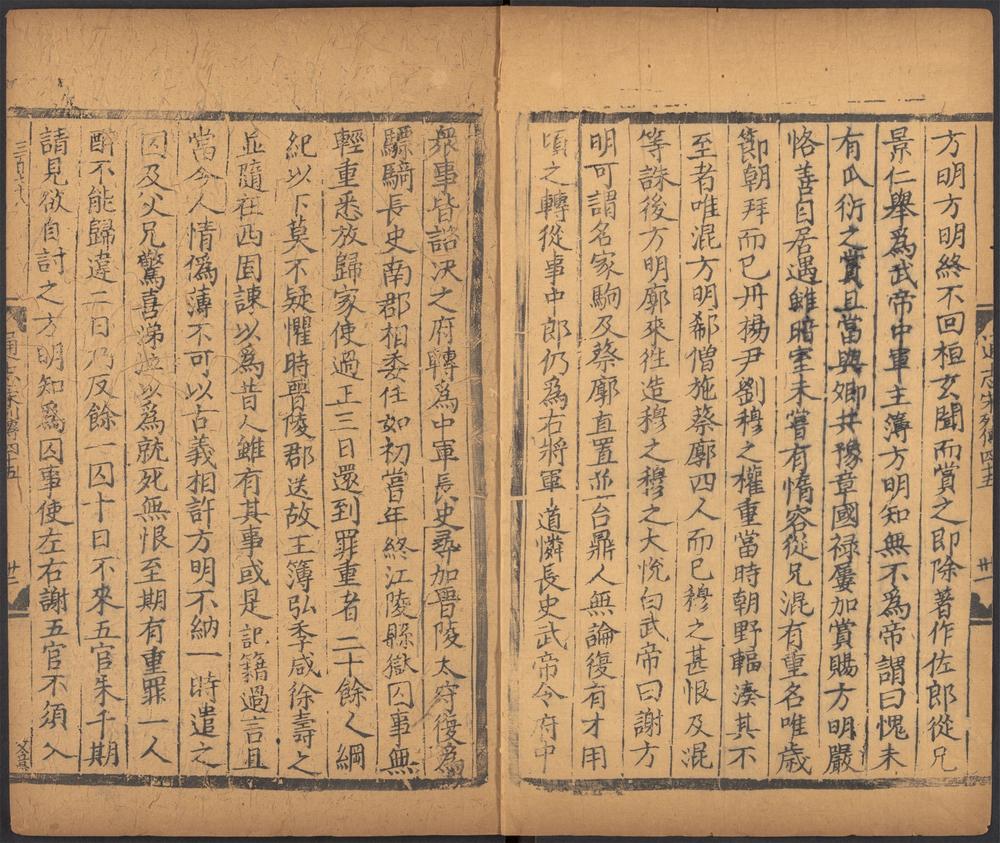 方明方明終不回桓玄聞而賞之即除著作佐郎從兄
景仁舉爲武帝中軍主簿方明知無不爲帝謂曰愧未
有瓜衍之賞且當與卿共豫章國祿屢加賞賜方明嚴
恪善自居遇雖暗室未嘗有惰容從兄混有重名唯歲
節朝拜而已丹楊尹劉穆之權重當時朝野輻湊其不
至者唯混方明郗僧施蔡廓四人而已穆之甚恨及混
等誅後方明廓來徃造穆之穆之大恱白武帝曰謝方
明可謂名家駒及蔡廓直置並台鼎人無論復有才用
頃之轉從事中郎仍爲右將軍道憐長史武帝令府中
衆事皆諮決之府轉爲中軍長史尋加晉陵太守復爲
驃騎長史南郡相委任如初嘗年終江陵縣獄囚事無
輕重悉放歸家使過正三日還到罪重者二十餘人綱
紀以下莫不疑懼時晉陵郡送故主簿弘季咸徐壽之
並隨在西固諫以爲昔人雖有其事或是記籍過言且
當今人情僞薄不可以古義相許方明不納一時遣之
囚及父兄驚喜涕泣以爲就死無恨至期有重罪一人
醉不能歸違二日乃反餘一囚十日不來五官朱千期
請見欲自討之方明知爲囚事使左右謝五官不須入
通志宋列傳四十五
廿一
廿二